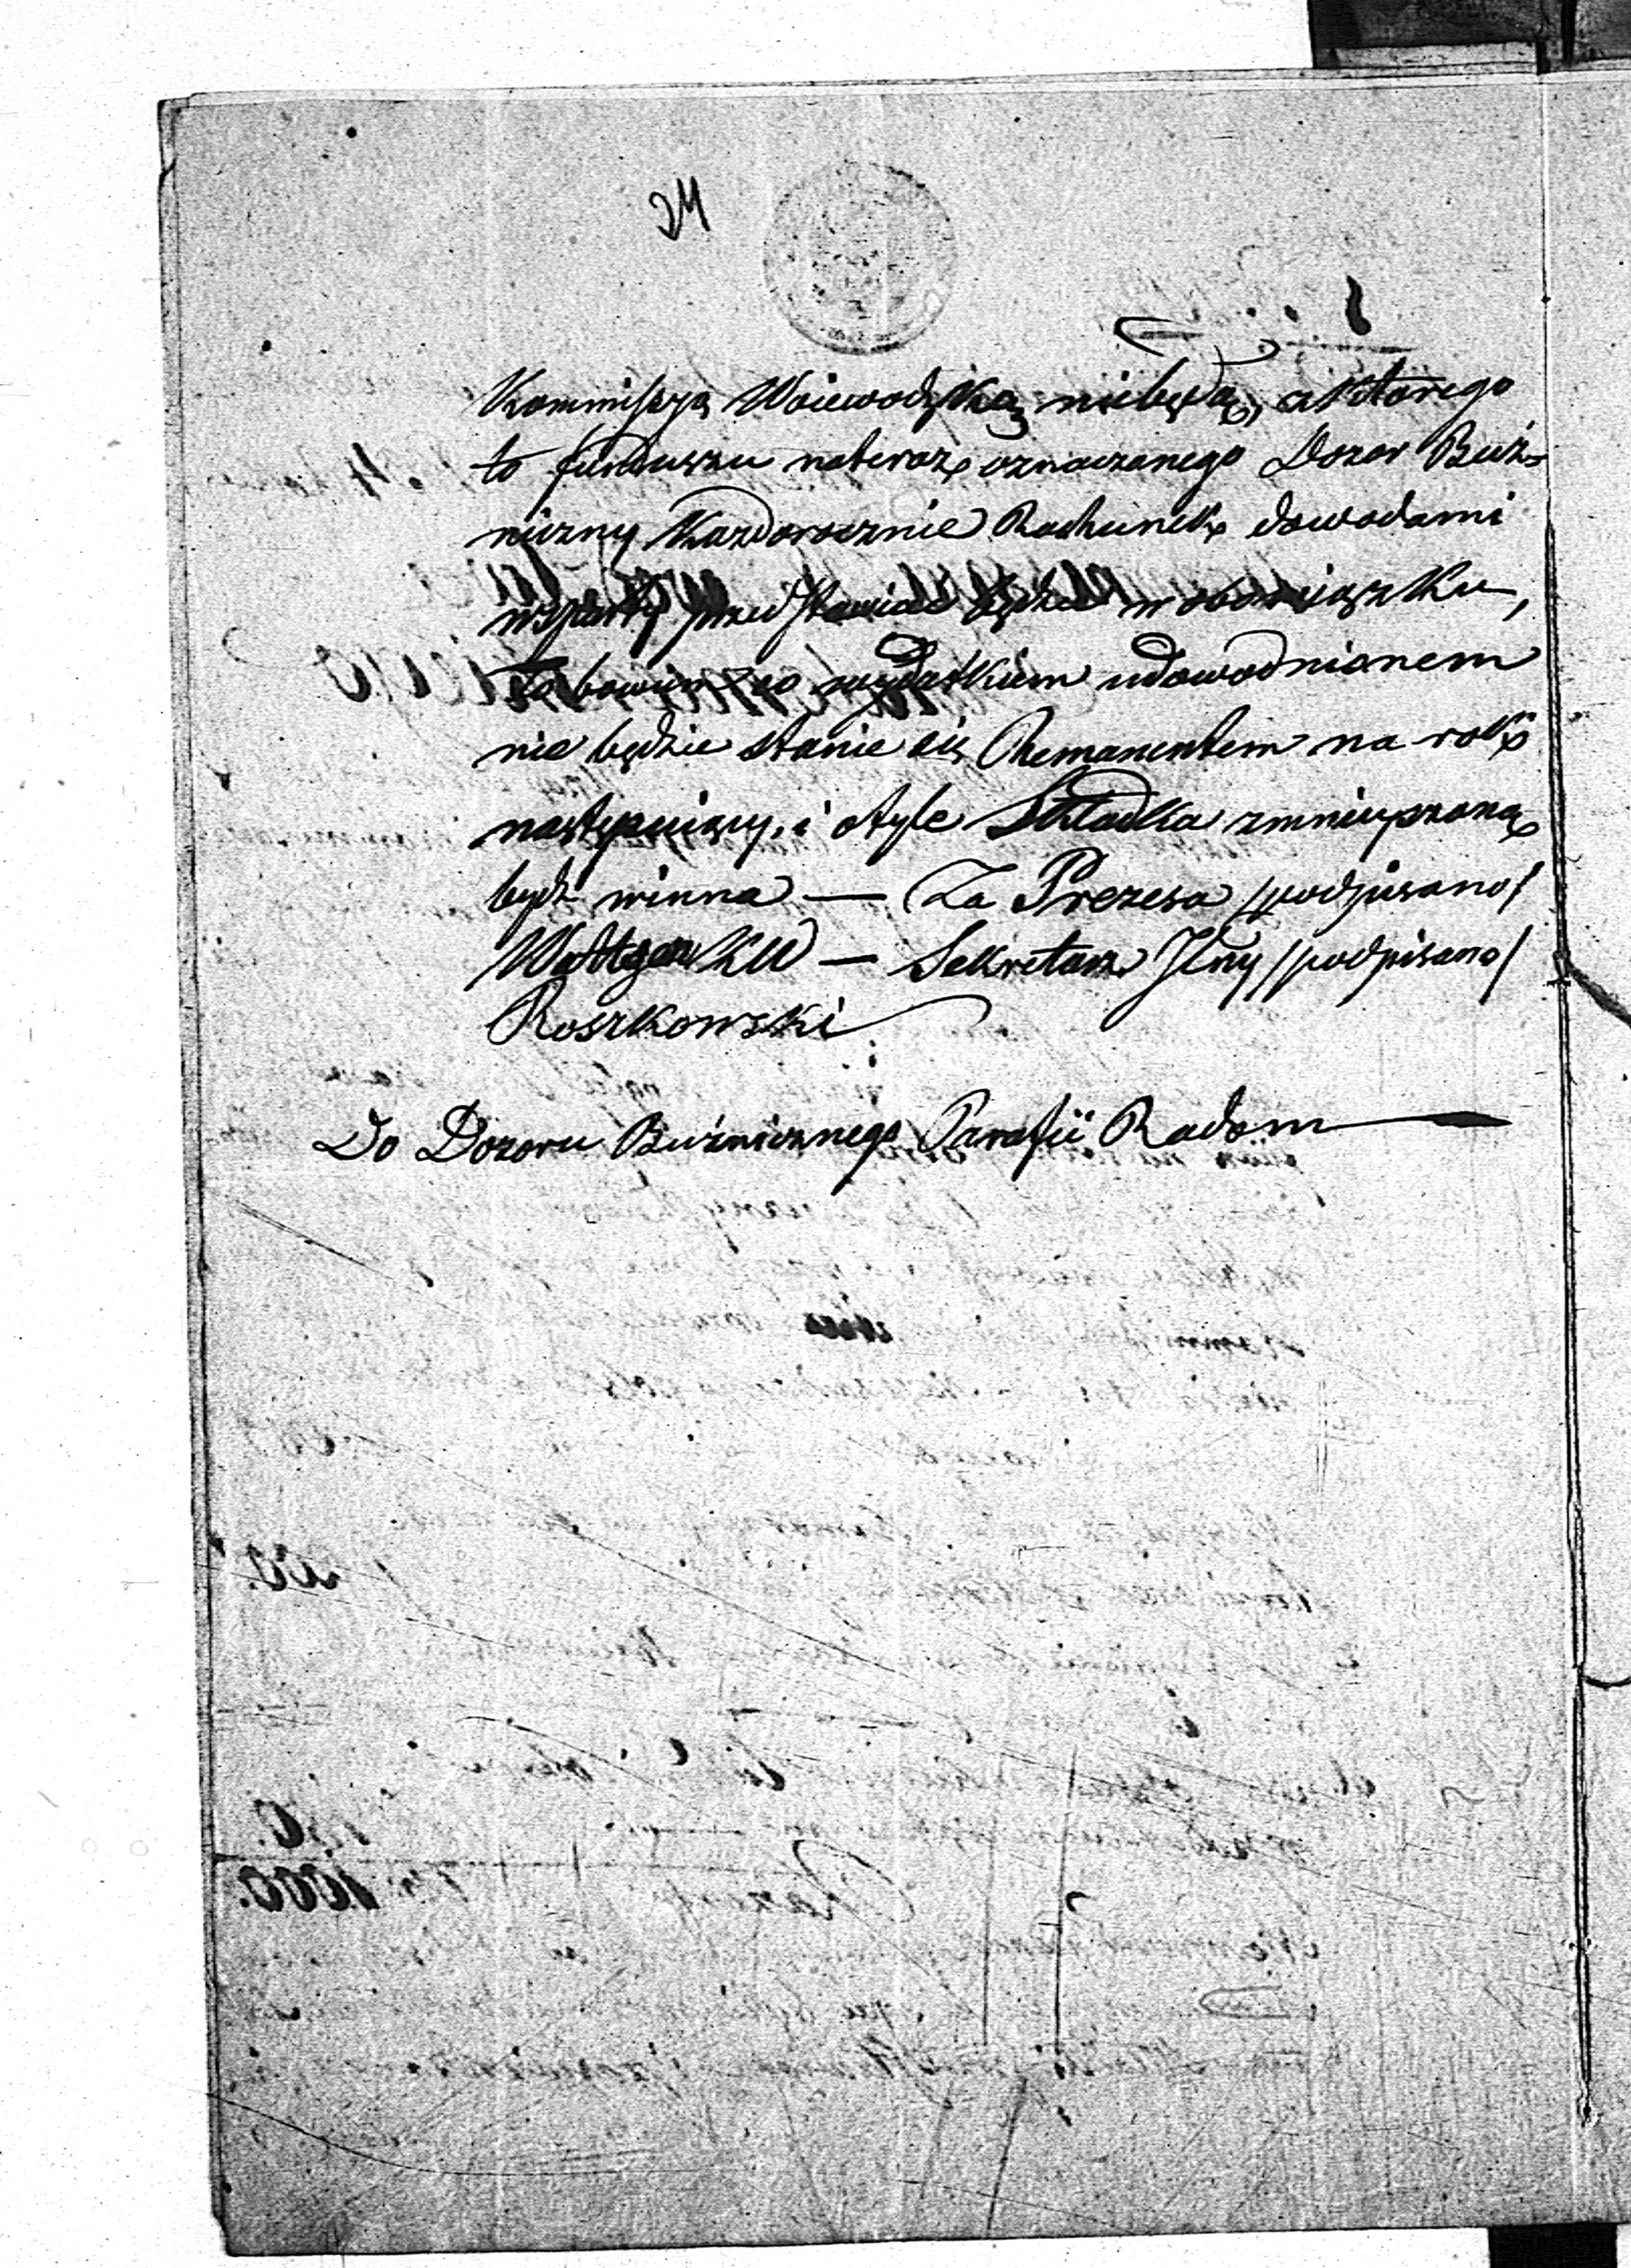 24
Kommissyą Woiewodzką niebędą, a którego
to funduszu nateraz oznaczonego Dozor Buź-
niczny Każdorocznie Rachunek dowodami
wsparty przedstawiać będzie w obowiązku,
to bowiem co wydatkiem udowodnionem
nie będzie stanie się Remanentem na rok
następuiący, i otyle Składka zmnieyszoną
bydź winna — Za Prezesa /podpisano/
KW — Sekretarz Jlny /podpisano/
Roszkowski
Do Dozoru Buźnicznego Parafii Radom